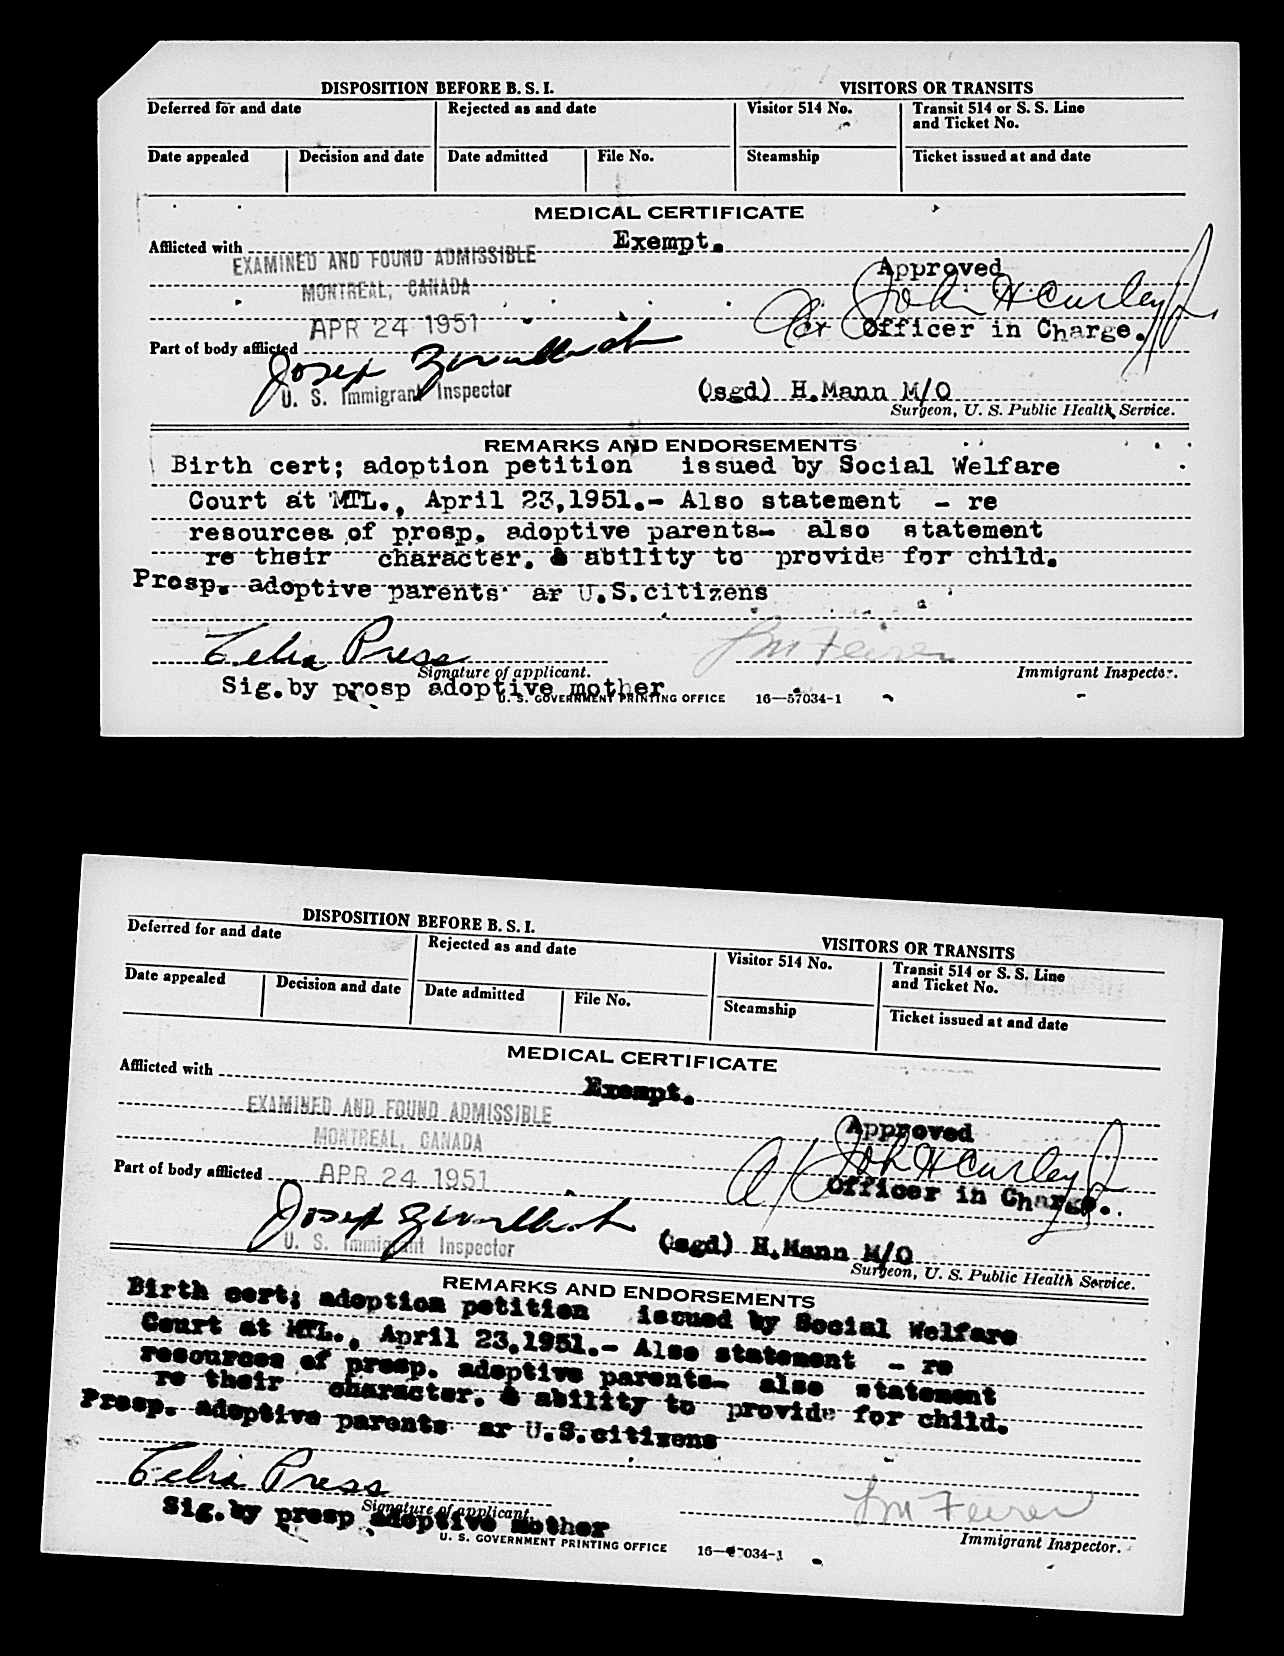 DISPOSITION BEFORE B. S. I.
VISITORS OR TRANSITS
Deferred for and date
Rejected as and date
Visitor 514 No.
Transit 514 or S. S. Line
and Ticket No.
Date appealed
Decision and date
Date admitted
File No.
Steamship
Ticket issued at and date
MEDICAL CERTIFICATE
Afflicted with
Exempt.
EXAMINED AND FOUND ADMISSIBLE
Approved
MONTREAL, CANADA
John H Curley Jr.
APR 24 1951
Officer in Charge.
Part of body afflicted
Josep
U. S. Immigrant Inspector
(sgd) H.Mann M/O
Surgeon, U. S. Public Health Service.
REMARKS AND ENDORSEMENTS
Birth cert; adoption petition issued by Social Welfare
Court at MTL., April 23,1951.- Also statement - re
resources of prosp. adoptive parents- also statement
re their character. & ability to provide for child.
Prosp. adoptive parents ar U.S.citizens
Celia Press
Signature of applicant.
Immigrant Inspector.
Sig.by prosp adoptive mother
U. S. GOVERNMENT PRINTING OFFICE 16—57034-1
DISPOSITION BEFORE B. S. I.
VISITORS OR TRANSITS
Deferred for and date
Rejected as and date
Visitor 514 No.
Transit 514 or S. S. Line
and Ticket No.
Date appealed
Decision and date
Date admitted
File No.
Steamship
Ticket issued at and date
MEDICAL CERTIFICATE
Afflicted with
Exempt.
EXAMINED AND FOUND ADMISSIBLE
Approved
MONTREAL, CANADA
John H Curley Jr
Part of body afflicted
APR 24 1951
Officer in Charge.
Josep
U. S. Immigrant Inspector
(sgd) H.Mann M/O
Surgeon, U. S. Public Health Service.
REMARKS AND ENDORSEMENTS
Birth cert; adoption petition issued by Social Welfare
Court at MTL., April 23,1951.- Also statement - re
resources of prosp. adoptive parents- also statement
re their character. & ability to provide for child.
Prosp. adoptive parents ar U.S.citizens
Celia Press
Signature of applicant.
Immigrant Inspector.
Sig.by prosp adoptive mother
U. S. GOVERNMENT PRINTING OFFICE 16—57034-1